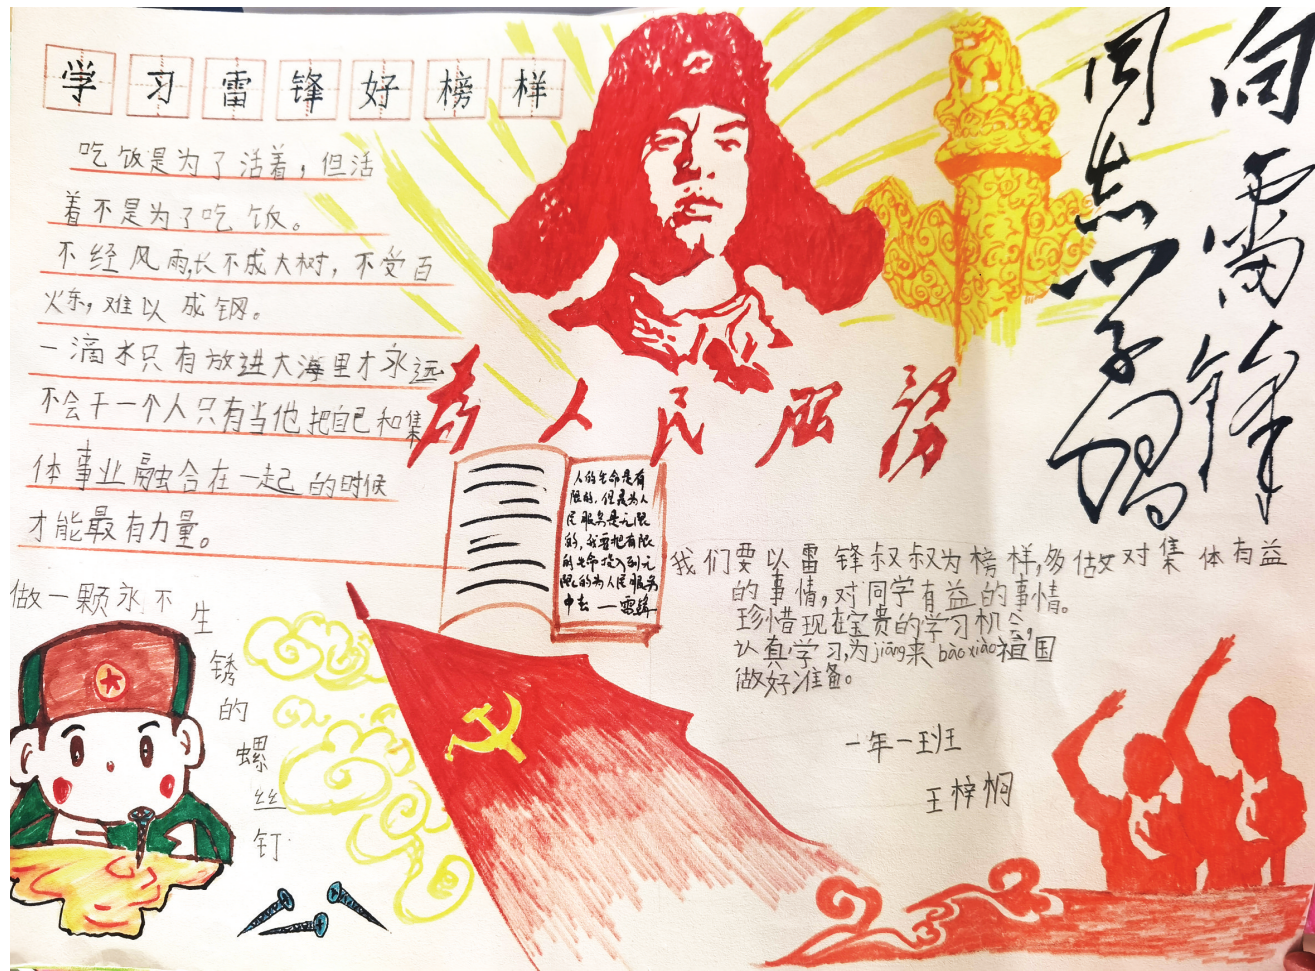 学习雷锋好榜样
吃饭是为了活着，但活
着不是为了吃饭。
不经风雨，长不成大树，不受百
炼，难以成钢。
一滴水只有放进大海里才永远
不会干一个人只有当他把自己和集
体事业融合在一起的时候
才能最有力量。
为人民服务
向雷锋
同志学习
人的生命是有
限的，但是为人
民服务是无限
的，我要把有限
的生命投入到无
限的为人民服务
中去 —雷锋
我们要以雷锋叔叔为榜样，多做对集体有益
的事情，对同学有益的事情。
珍惜现在宝贵的学习机会，
认真学习，为jiāng来bào xiào祖国
做好准备。
一年一班
王梓
做一颗永不生
锈
的
螺
丝
钉